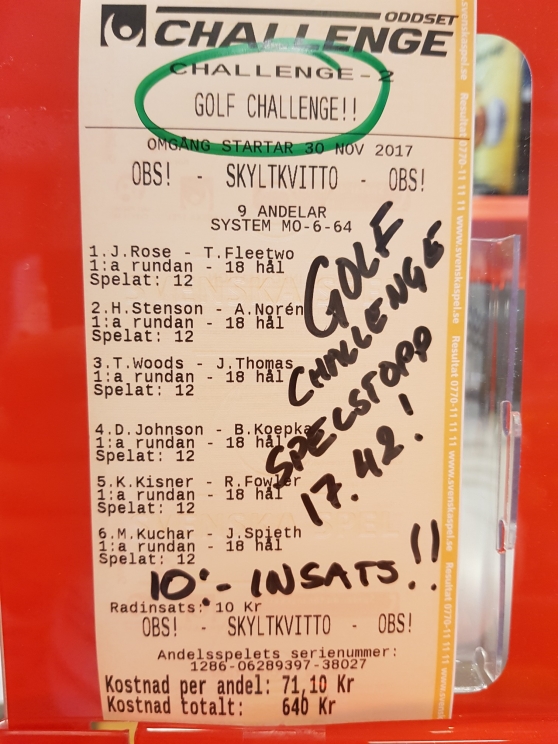 ODDSET
CHALLENGE
CHALLENGE-2
GOLF CHALLENGE!!
OMGÅNG STARTAR 30 NOV 2017
OBS! - SKYLTKVITTO - OBS!
9 ANDELAR
SYSTEM MO-6-64
1.J.Rose - T.Fleetwo
1:a rundan - 18 hål
Spelat: 12
2.H.Stenson - A.Norén
1:a rundan - 18 hål
Spelat: 12
3.T.Woods - J.Thomas
1:a rundan - 18 hål
Spelat: 12
4.D.Johnson - B.Koepka
1:a rundan - 18 hål
Spelat: 12
5.K.Kisner - R.Fowler
1:a rundan - 18 hål
Spelat: 12
6.M.Kuchar - J.Spieth
1:a rundan - 18 hål
Spelat: 12
GOLF
CHALLENGE
SPELSTOPP
17.42!
10:- INSATS.!!
Radinsats: 10 Kr
OBS! - SKYLTKVITTO - OBS!
Andelsspelets serienummer:
1286-06289397-38027
Kostnad per andel: 71,10 Kr
Kostnad totalt: 640 Kr
www.svenskaspel.se Resultat 0770-11 11 11 www.svenskaspel.se Resultat 0770-11 11 11 www.svenskaspel.se Resultat 0770-11 11 11